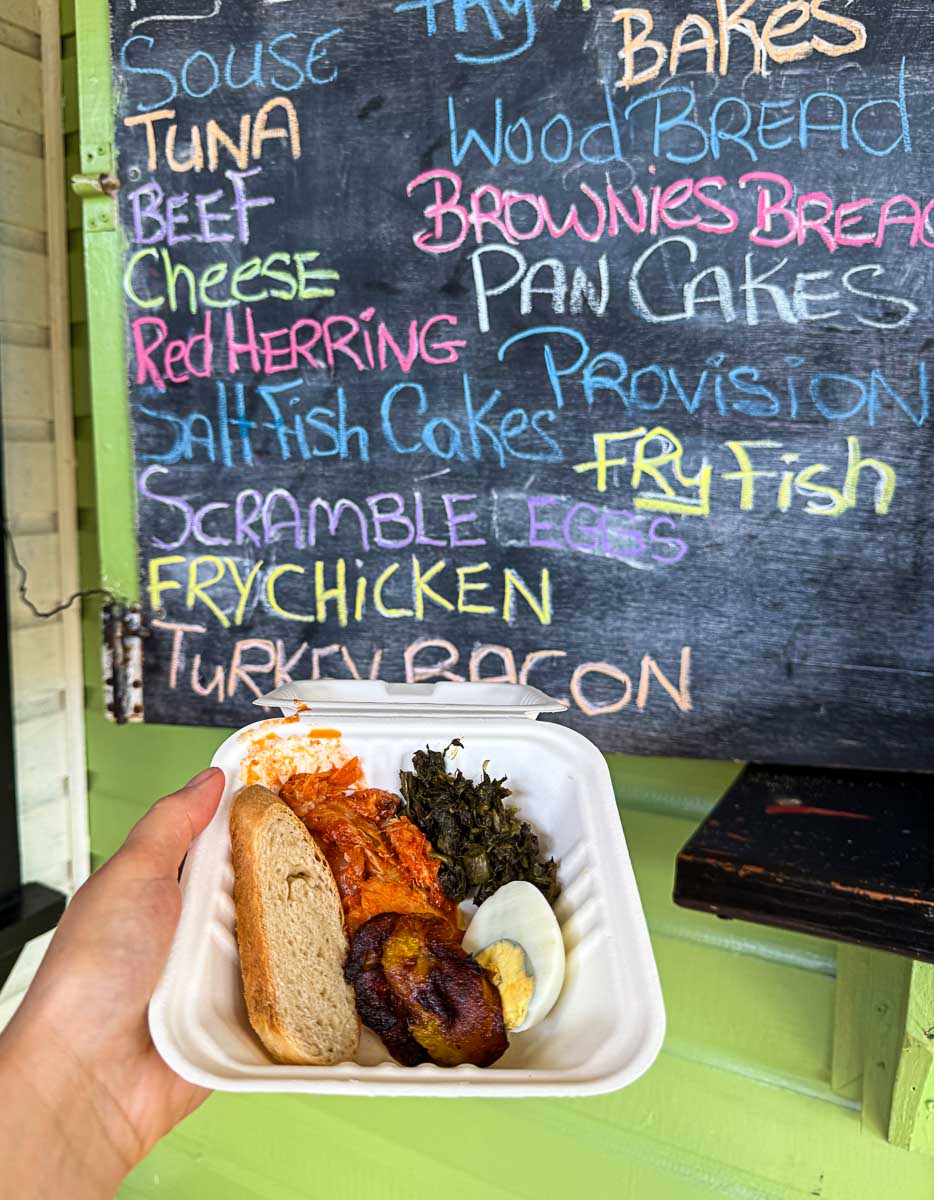 FRY
BAKES
SOUSE
TUNA
Wood BREAD
BEEF
BROWNies BREAD
CheeSE
PAN CAKES
Red HERRiNG
PROViSiON
SaltFish Cakes
FRy Fish
SCRAmBLE EGGS
FRY CHiCKEN
TuRKEY BACON